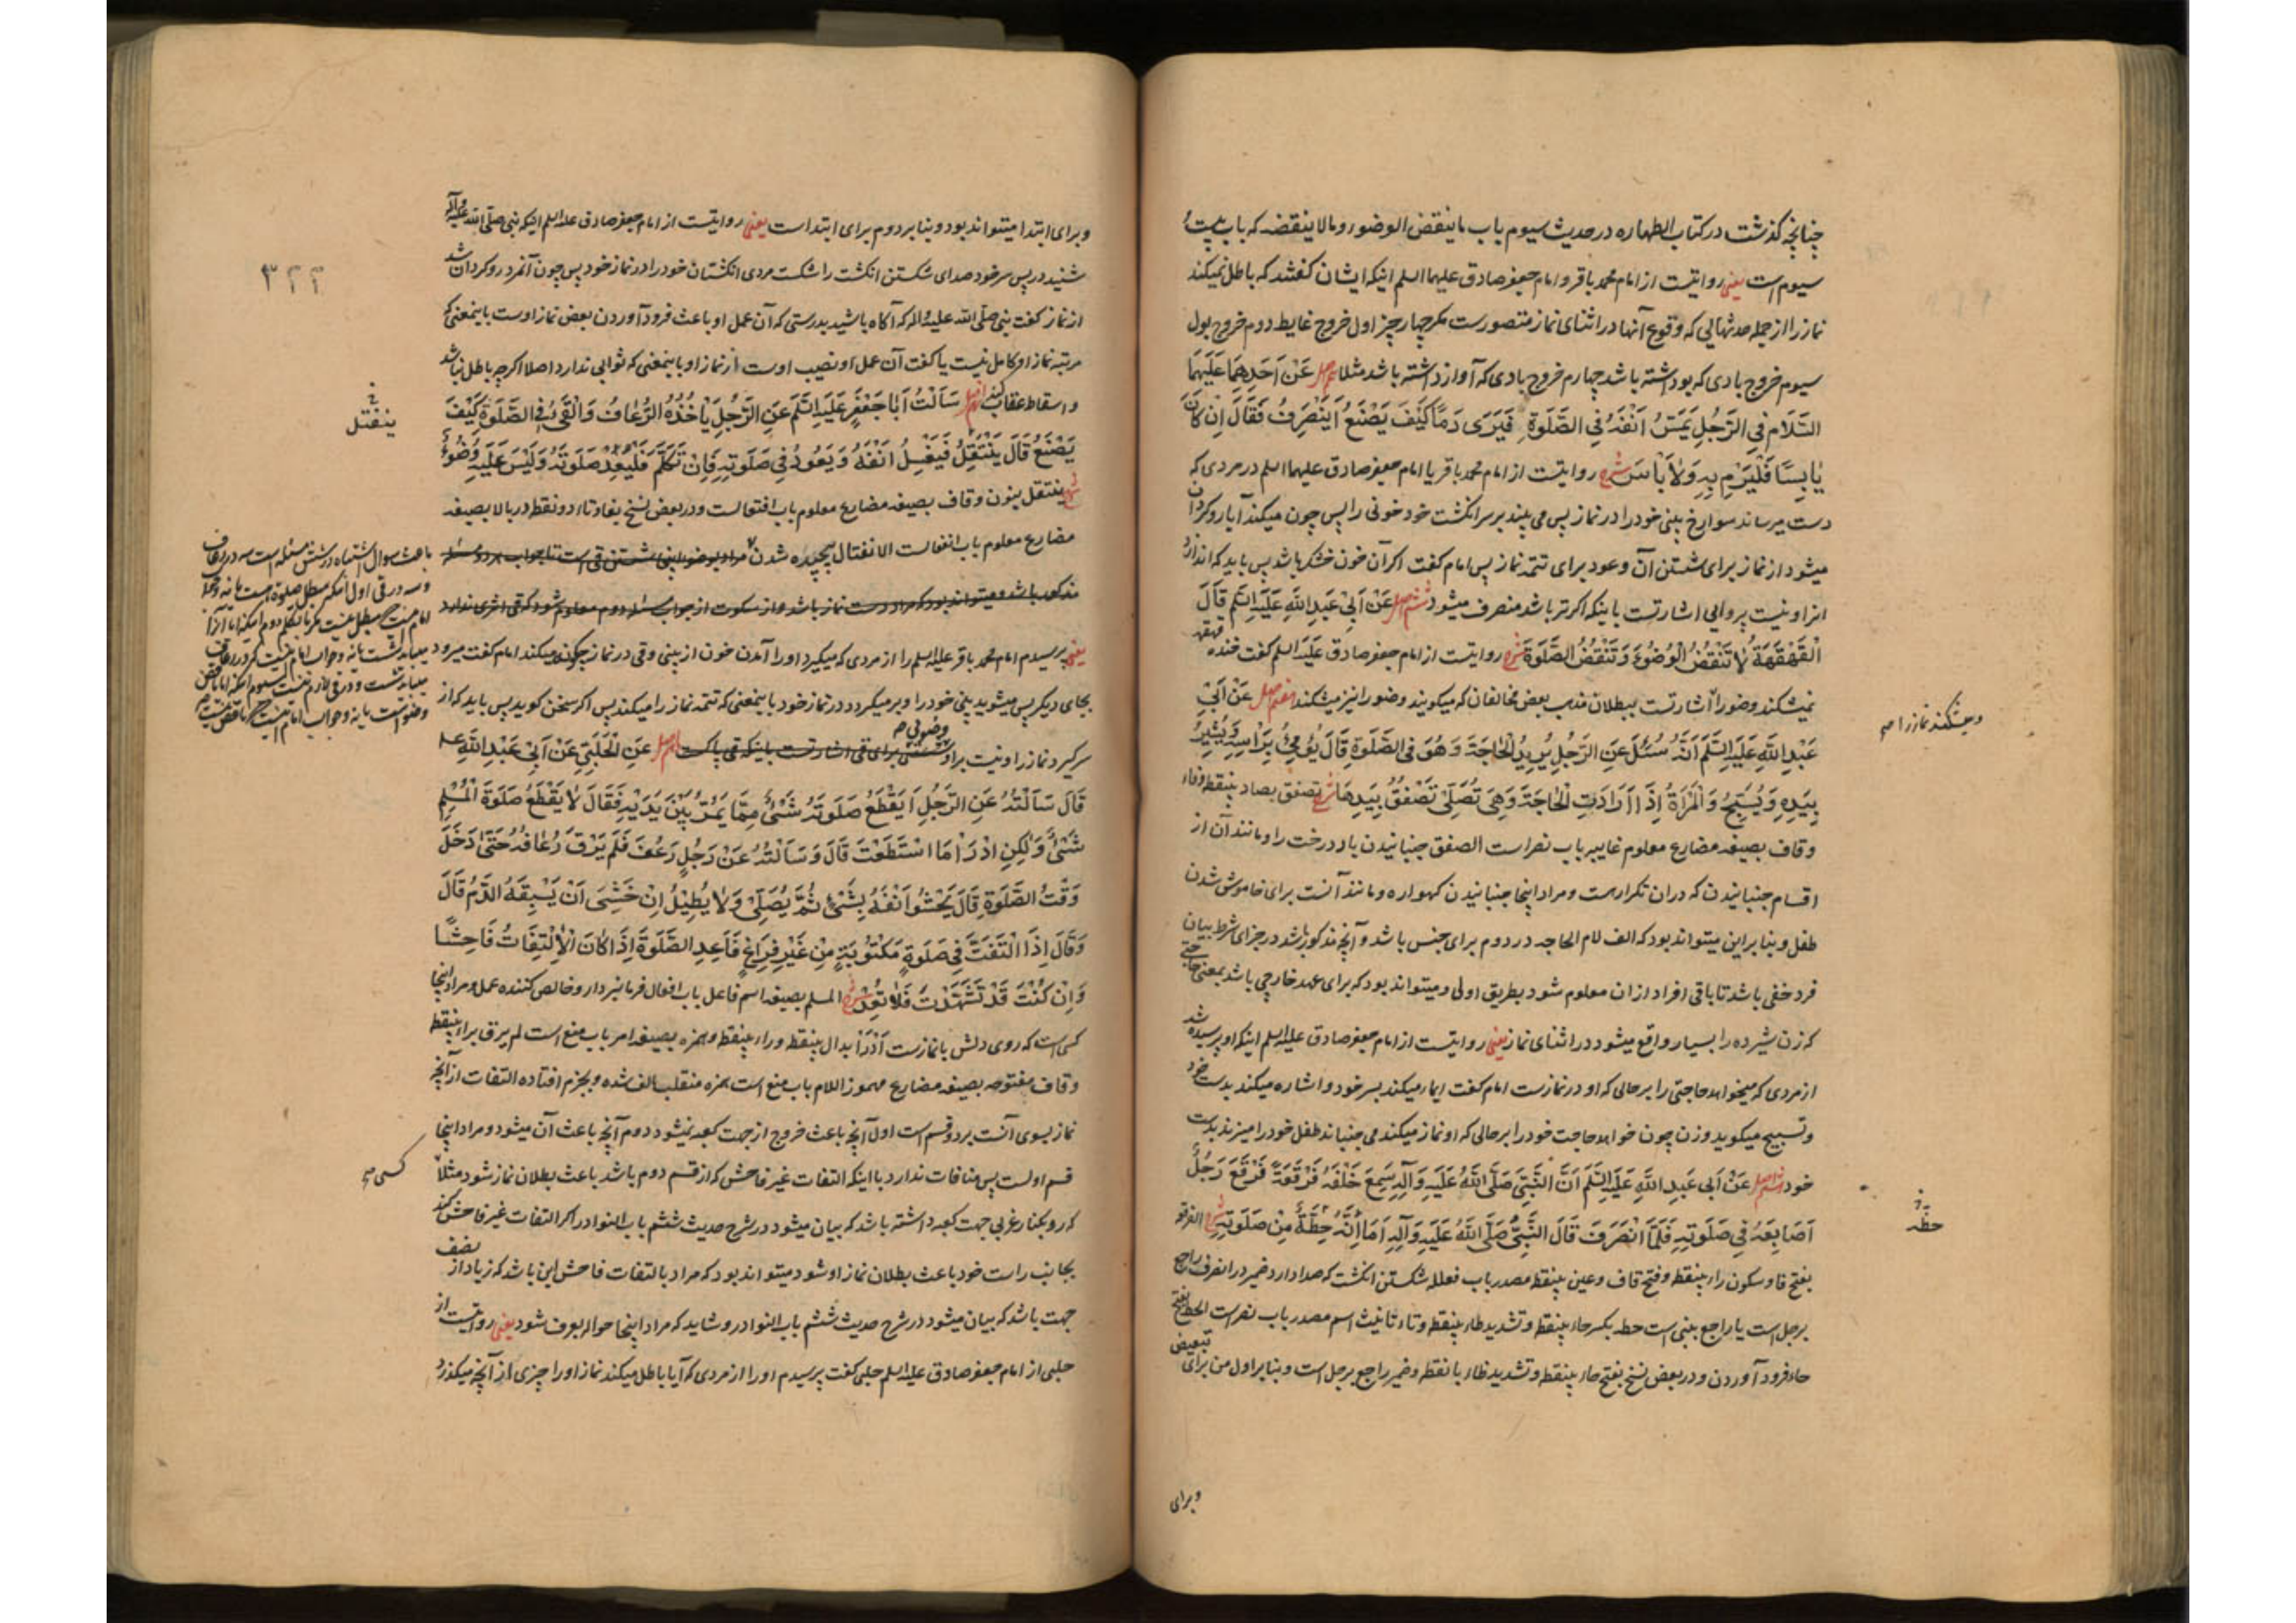 چنانچه گذشت در کتاب الطهاره در حدیث سیوم باب ما ینقض الوضوء و ما لا ینقضه که باب بیست و
سیوم است یعنی روایتست از امام محمد باقر و امام جعفر صادق علیهما السلم اینکه ایشان گفتند که باطل نمیکند
نماز را از جمله حدثهایی که وقوع آنها در اثنای نماز متصورست مگر چهار چیز اول خروج غایط دوم خروج بول
سیوم خروج بادی که بو داشته باشد چهارم خروج بادی که آواز داشته باشد مثلا اصل عَنْ اَحَدِهِمَا عَلَیْهِمَا
السَّلَام فِی الرَّجُلِ یَمَسُّ اَنْفَهُ فِی الصَّلٰوةِ فَیَرَی دَمًا کَیْفَ یَصْنَعُ اَیَنْصَرِفُ فَقَالَ اِنْ کَانَ
یَابِسًا فَلْیَرْمِ بِهِ وَلَا بَأْسَ شرح روایتست از امام محمد باقر یا امام جعفر صادق علیهما السلم در مردی که
دست میرساند سوراخ بینی خود را در نماز پس می بیند بر سر انگشت خود خونی را پس چون میکند آیا روگردان
میشود از نماز برای شستن آن و عود برای تتمه نماز پس امام گفت اگر آن خون خشک باشد پس باید که اندازد
انرا و نیست پروایی اشارتست باینکه اگر تر باشد منصرف میشود ششم اصل عَنْ اَبِی عَبْدِ اللّٰهِ عَلَیْهِ السَّلَم قَالَ
الْقَهْقَهَةُ لَا تَنْقُضُ الْوُضُوءَ وَ تَنْقُضُ الصَّلٰوةَ شرح روایتست از امام جعفر صادق عَلَیْهِ السلم گفت خنده قهقهه
نمیشکند وضو را اشارتست ببطلان مذهب بعض مخالفان که میگویند وضو را نیز میشکند هفتم اصل عَنْ اَبِی
و میشکند نماز را صح
عَبْدِ اللّٰهِ عَلَیْهِ السَّلَم اَنَّهُ سُئِلَ عَنِ الرَّجُلِ یُرِیدُ الْحَاجَةَ وَ هُوَ فِی الصَّلٰوةِ قَالَ یُومِئُ بِرَأْسِهِ وَ یُشِیرُ
بِیَدِهِ وَ یُسَبِّحُ وَ الْمَرْأَةُ اِذَا اَرَادَتِ الْحَاجَةَ وَ هِیَ تُصَلِّی تَصْفِقُ بِیَدِهَا شرح تصفق بصاد بینقطه و فاء
و قاف بصیغه مضارع معلوم غایبه باب نصر است الصفق جنبانیدن باد درخت را و مانند آن از
اقسام جنبانیدن که دران تکرارست و مراد اینجا جنبانیدن گهواره و مانند آنست برای خاموش شدن
طفل و بنا براین میتواند بود که الف لام الحاجه در دوم برای جنس باشد و آنچه مذکور باشد در جزای شرط بیان
فرد خفی باشد تا باقی افراد ازان معلوم شود بطریق اولی و میتواند بود که برای عهد خارجی باشد بمعنی حاجتی
که زن شیرده را بسیار واقع میشود در اثنای نماز یعنی روایتست از امام جعفر صادق علیه السلم اینکه او پرسیده شد
از مردی که میخواهد حاجتی را بر حالی که او در نمازست امام گفت ایما میکند بسر خود و اشاره میکند بدست خود
و تسبیح میگوید و زن چون خواهد حاجت خود را بر حالی که او نماز میکند می جنباند طفل خود را میزند بدست
خود هشتم اصل عَنْ اَبِی عَبْدِ اللّٰهِ عَلَیْهِ السَّلَم اَنَّ النَّبِیَّ صَلَّی اللّٰهُ عَلَیْهِ وَ آلِهِ سَمِعَ خَلْفَهُ فَرْقَعَةً فَرْقَعَ رَجُلٌ
اَصَابِعَهُ فِی صَلٰوتِهِ فَلَمَّا انْصَرَفَ قَالَ النَّبِیُّ صَلَّی اللّٰهُ عَلَیْهِ وَ آلِهِ اَمَا اِنَّهُ حِطَّةٌ مِنْ صَلٰوتِهِ شرح الفرقعه
حظه
بفتح فا و سکون راء بینقطه و فتح قاف و عین بینقطه مصدر باب فعلله شکستن انگشت که صدا دارد ضمیر در انصرف راجع
برجل است یا راجع بنبی است حطه بکسر حاء بینقطه و تشدید طاء بینقطه و تاء تانیث اسم مصدر باب نصر است الحط بفتح
حاء فرود آوردن و در بعض نسخ بفتح حاء بینقطه و تشدید ظاء با نقطه و ضمیر راجع برجل است و بنا بر اول من برای تبعیض
و برای
و برای ابتدا میتواند بود و بنا بر دوم برای ابتداست یعنی روایتست از امام جعفر صادق علیه السلم اینکه نبی صلّی اللّه علیه و آله
۳۲۲
شنید در پس سر خود صدای شکستن انگشت را شکست مردی انگشتان خود را در نماز خود پس چون آنمرد روگردان شد
از نماز گفت نبی صلّی اللّه علیه و اله که آگاه باشید بدرستی که آن عمل او باعث فرود آوردن بعض نماز اوست باینمعنی که
مرتبه نماز او کامل نیست یا گفت آن عمل او نصیب اوست از نماز او باینمعنی که ثوابی ندارد اصلا اگرچه باطل نباشد
و اسقاط عقاب کند نهم اصل سَاَلْتُ اَبَا جَعْفَرٍ عَلَیْهِ السَّلَم عَنِ الرَّجُلِ یَأْخُذُهُ الرُّعَافُ وَ الْقَیْءُ فِی الصَّلٰوةِ کَیْفَ
ینفتل
یَصْنَعُ قَالَ یَنْتَقِلُ فَیَغْسِلُ اَنْفَهُ وَ یَعُودُ فِی صَلٰوتِهِ فَاِنْ تَکَلَّمَ فَلْیُعِدْ صَلٰوتَهُ وَ لَیْسَ عَلَیْهِ وُضُوءٌ
شرح ینتقل بنون و قاف بصیغه مضارع معلوم باب افتعالست و در بعض نسخ بفاء و تاء دو نقطه در بالا بصیغه
مضارع معلوم باب انفعالست الانفتال پیچیده شدن مراد بوضو اینجا شستن قی است تا جواب هر دو مسئله
مذکور باشد و میتواند بود که مراد دست نماز باشد و از سکوت از جواب مسئله دوم معلوم شود که قی اثری ندارد
یعنی پرسیدم امام محمد باقر علیه السلم را از مردی که میگیرد او را آمدن خون از بینی و قی در نماز چگونه میکند امام گفت میرود
بجای دیگر پس میشوید بینی خود را و بر میگردد در نماز خود باینمعنی که تتمه نماز را میکند پس اگر سخن گوید پس باید که از
سر گیرد نماز را و نیست بر او وضوئی صح شستنی برای قی اشارتست باینکه قی پاکست دهم اصل عَنِ الْحَلَبِیِّ عَنْ اَبِی عَبْدِ اللّٰهِ علیه
قَالَ سَاَلْتُهُ عَنِ الرَّجُلِ اَ یَقْطَعُ صَلٰوتَهُ شَیْءٌ مِمَّا یَمُرُّ بَیْنَ یَدَیْهِ فَقَالَ لَا یَقْطَعُ صَلٰوةَ الْمُسْلِمِ
شَیْءٌ وَ لٰکِنِ ادْرَأْ مَا اسْتَطَعْتَ قَالَ وَ سَاَلْتُهُ عَنْ رَجُلٍ رَعَفَ فَلَمْ یَرْقَ رُعَافُهُ حَتّٰی دَخَلَ
وَقْتُ الصَّلٰوةِ قَالَ یَحْشُو اَنْفَهُ بِشَیْءٍ ثُمَّ یُصَلِّی وَ لَا یُطِیلُ اِنْ خَشِیَ اَنْ یَسْبِقَهُ الدَّمُ قَالَ
وَ قَالَ اِذَا الْتَفَتَّ فِی صَلٰوةٍ مَکْتُوبَةٍ مِنْ غَیْرِ فَرَاغٍ فَاَعِدِ الصَّلٰوةَ اِذَا کَانَ الْاِلْتِفَاتُ فَاحِشًا
وَ اِنْ کُنْتَ قَدْ تَشَهَّدْتَ فَلَا تُعِدْ شرح المسلم بصیغه اسم فاعل باب افعال فرمانبردار و خالص کننده عمل و مراد اینجا
کسی است که روی دلش با نمازست اَدْرَأ بدال بینقطه و راء بینقطه و همزه بصیغه امر باب منع است لم یرق براء بینقطه
و قاف مفتوحه بصیغه مضارع مهموز اللام باب منع است همزه منقلب بالف شده و بجزم افتاده التفات از آنچه
نماز بسوی آنست بر دو قسم است اول آنچه باعث خروج از جهت کعبه نمیشود دوم آنچه باعث آن میشود و مراد اینجا
قسم اولست پس منافات ندارد با اینکه التفات غیر فاحش که از قسم دوم باشد باعث بطلان نماز شود مثلاً
کسی صح
که رو بکنار غربی جهت کعبه داشته باشد که بیان میشود در شرح حدیث ششم باب النوادر اگر التفات غیر فاحش کند
بجانب راست خود باعث بطلان نماز او شود میتواند بود که مراد بالتفات فاحش این باشد که زیاد از نصف
جهت باشد که بیان میشود در شرح حدیث ششم باب النوادر و شاید که مراد اینجا حواله بعرف شود یعنی روایتست از
حلبی از امام جعفر صادق علیه السلم حلبی گفت پرسیدم او را از مردی که آیا باطل میکند نماز او را چیزی از آنچه میگذرد